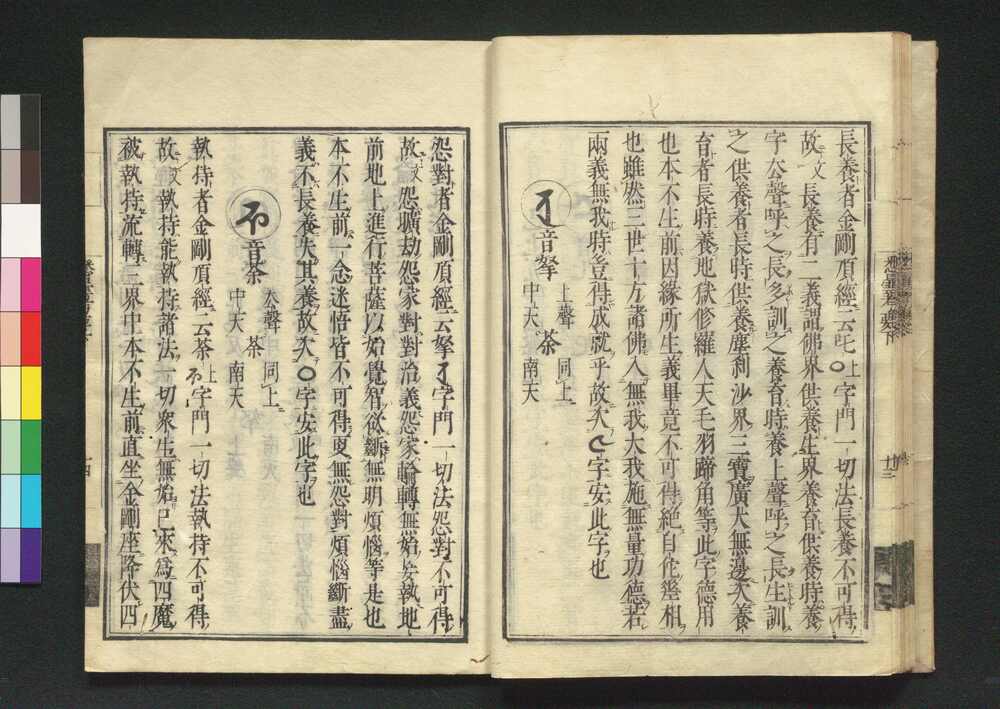 長養者金剛頂經云吒上字門一切法長養不可得
故文長養有二義謂佛界供養生界養育供養時養
字公聲呼之長多訓之養育時養上聲呼之長生訓
之供養者長時供養塵刹沙界三寶廣大無邊次養
育者長時養地獄修羅人天毛羽蹄角等此字德用
也本不生前因緣所生義畢竟不可得絶自佗盡相
也雖然三世十方諸佛人無我大我施無量功德若
兩義無我時豈得成就乎故次字安此字也
音拏 上聲 中天 茶 同上 南天
怨對者金剛頂經云拏字門一切法怨對不可得
故文怨曠劫怨家對對治義怨家輪轉無始妄執地
前地上進行菩薩以始覺智欲斷無明煩惱等是也
本不生前一念迷悟皆不可得更無怨對煩惱斷盡
義不長養失其養故次字安此字也
音茶 公聲 中天 茶 同上 南天
執持者金剛頂經云茶上字門一切法執持不可得
故文執持能執持諸法一切衆生無始已來爲四魔
被執持流轉三界中本不生前直坐金剛座降伏四